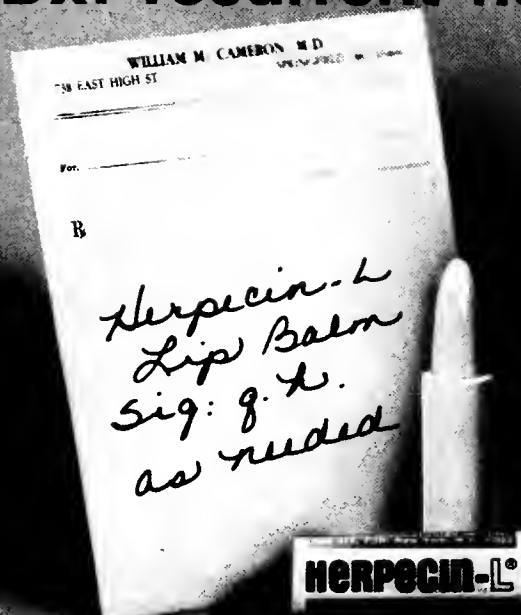 WILLIAM M. CAMERON M.D
738 EAST HIGH ST
SPRINGFIELD
For.
℞
Herpecin-L
Lip Balm
Sig: q.h.
as needed
HERPECIN-L®